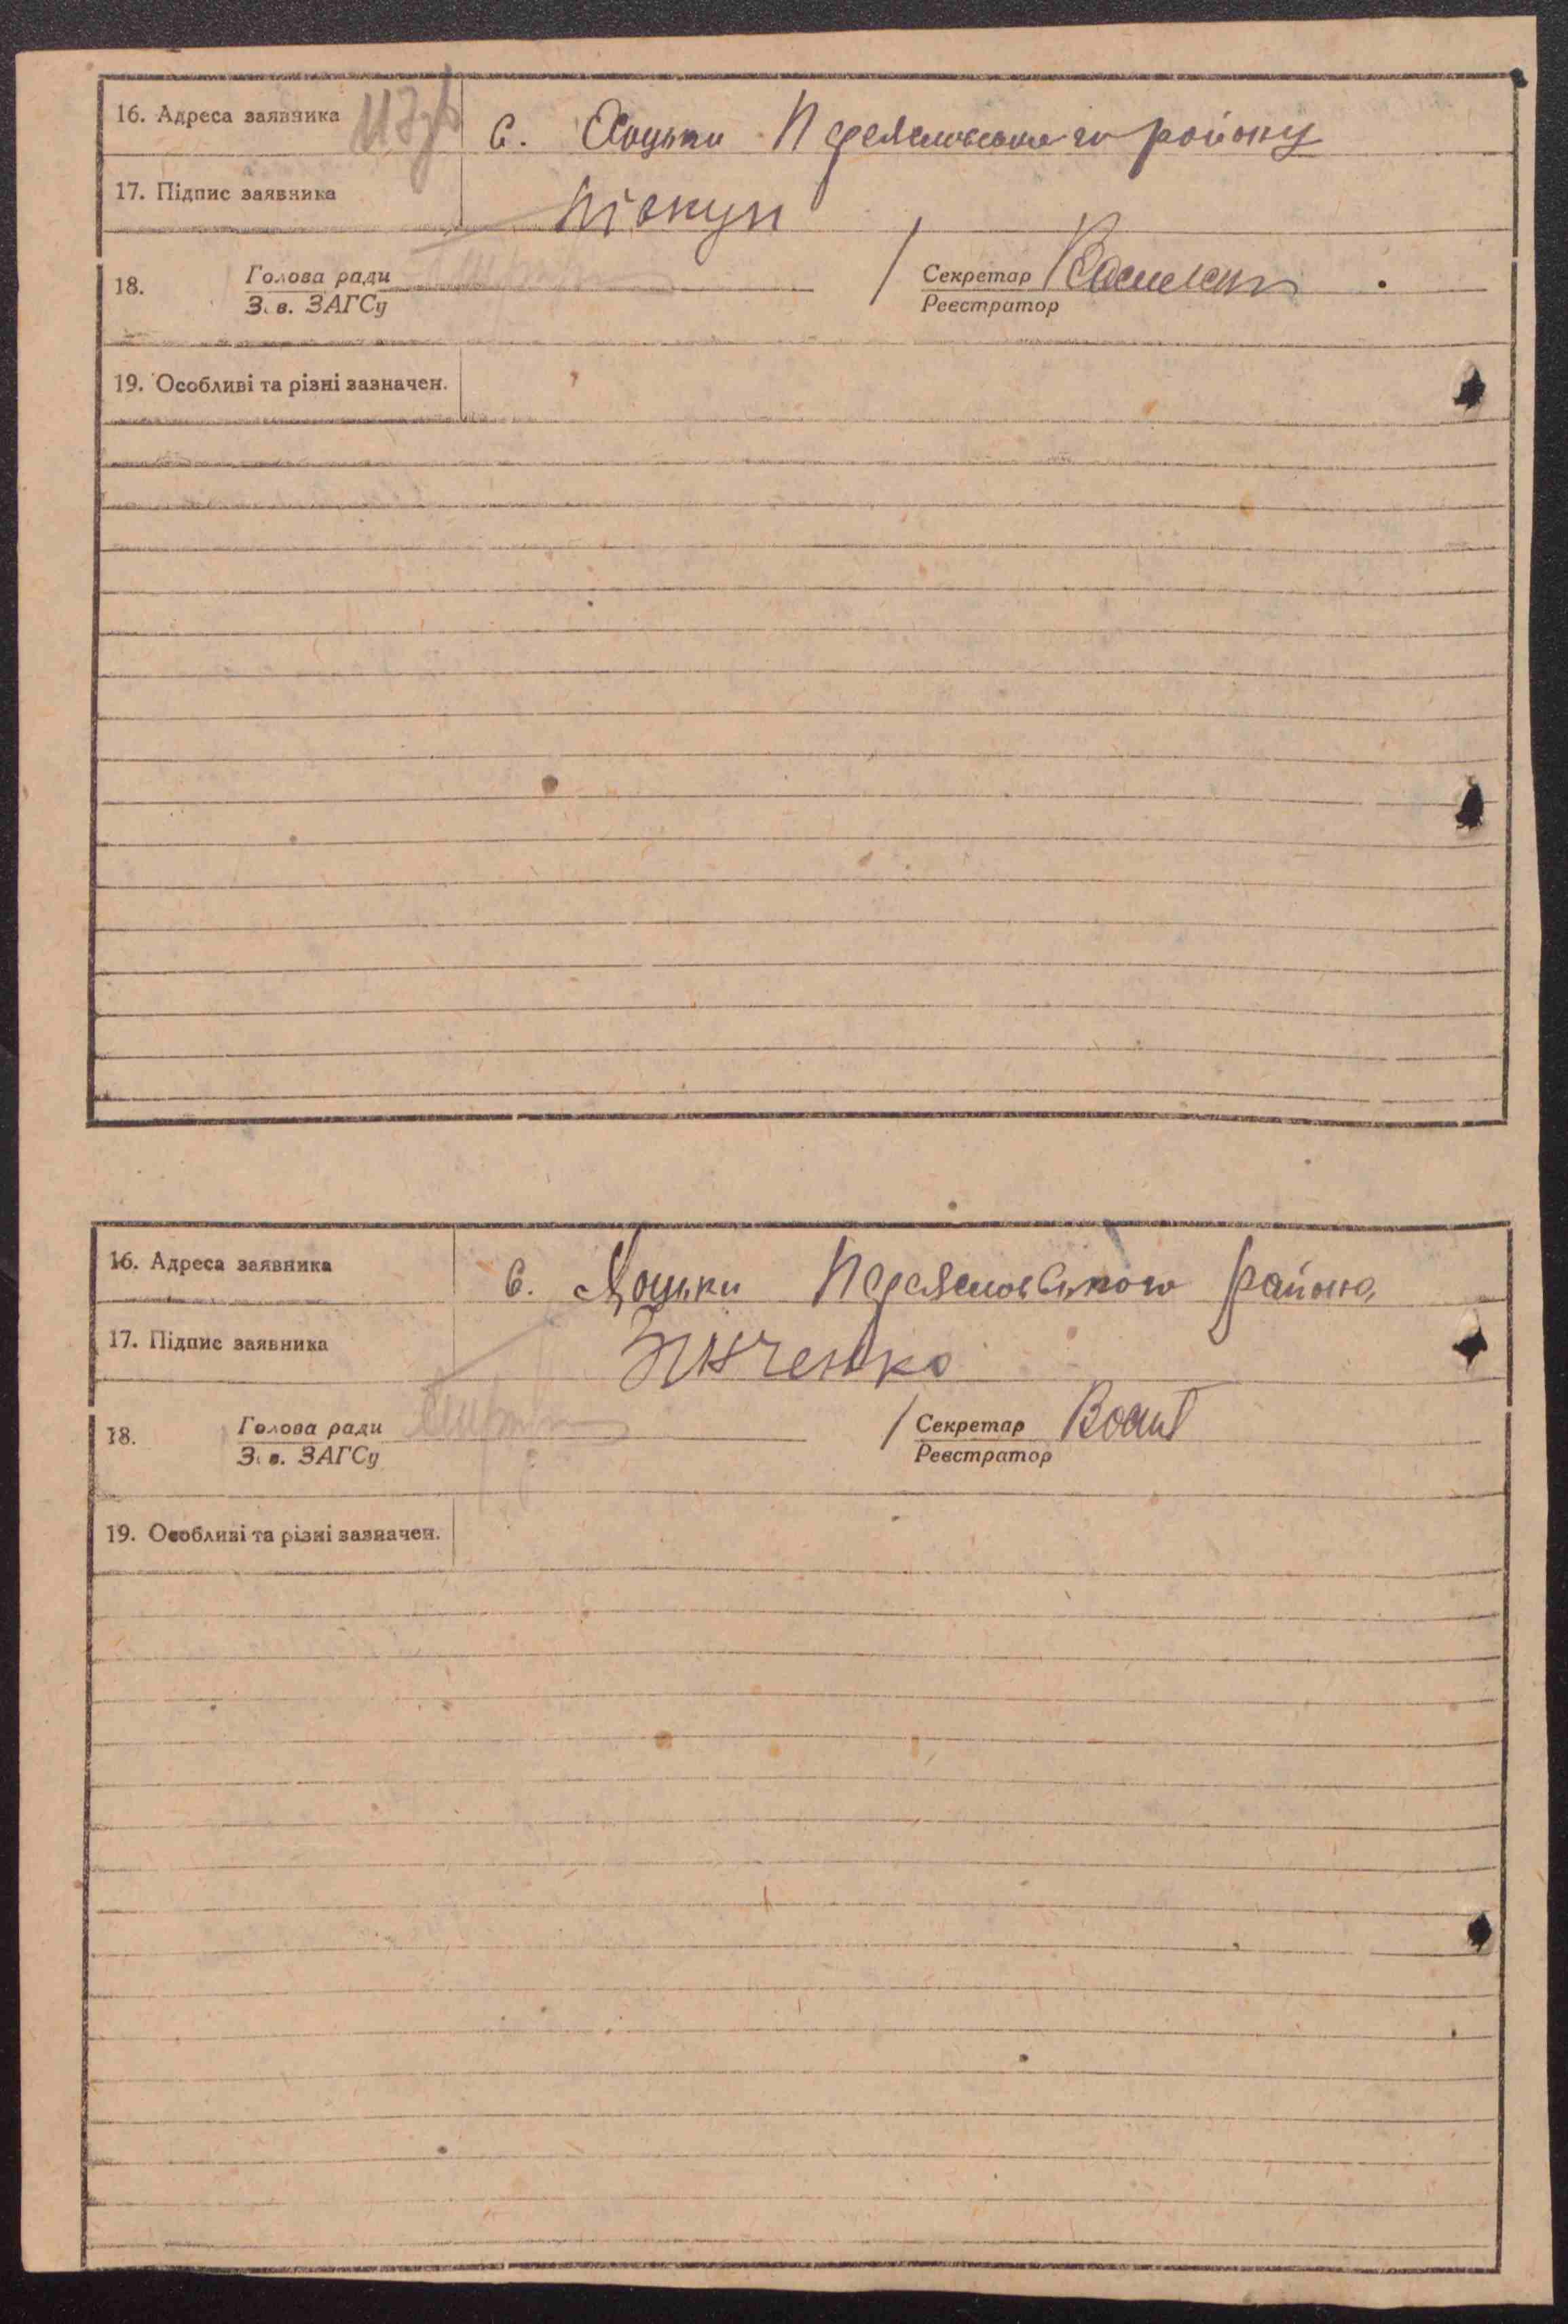 16. Адреса заявника с. Хоцьки Переяславського району
17. Підпис заявника Піскун
18. Голова ради Секретар
З. в. ЗАГСу Реєстратор
19. Особливі та різні зазначен.
16. Адреса заявника с. Хоцьки Переяславського району
17. Підпис заявника Зінченко
18. Голова ради Секретар
З. в. ЗАГСу Реєстратор
19. Особливі та різні зазначен.